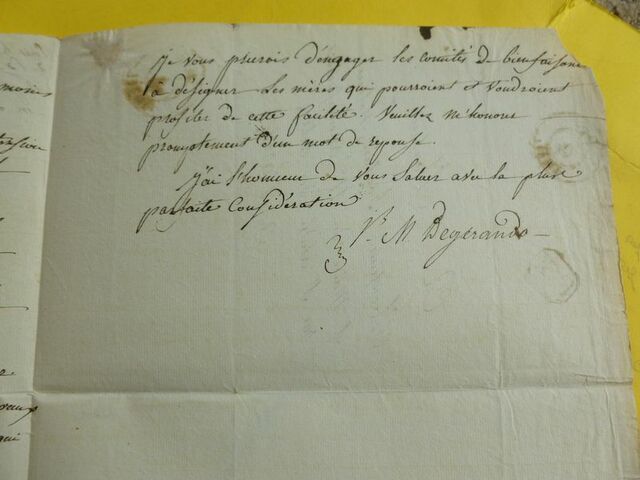 je vous prierois d'engager les comités de bienfaisance
à désigner les mères qui pourroient et voudroient
profiter de cette facilité. Veuillez m'honorer
promptement d'un mot de reponse.
J'ai l'honneur de vous saluer avec la plus
parfaite considération
Degérando